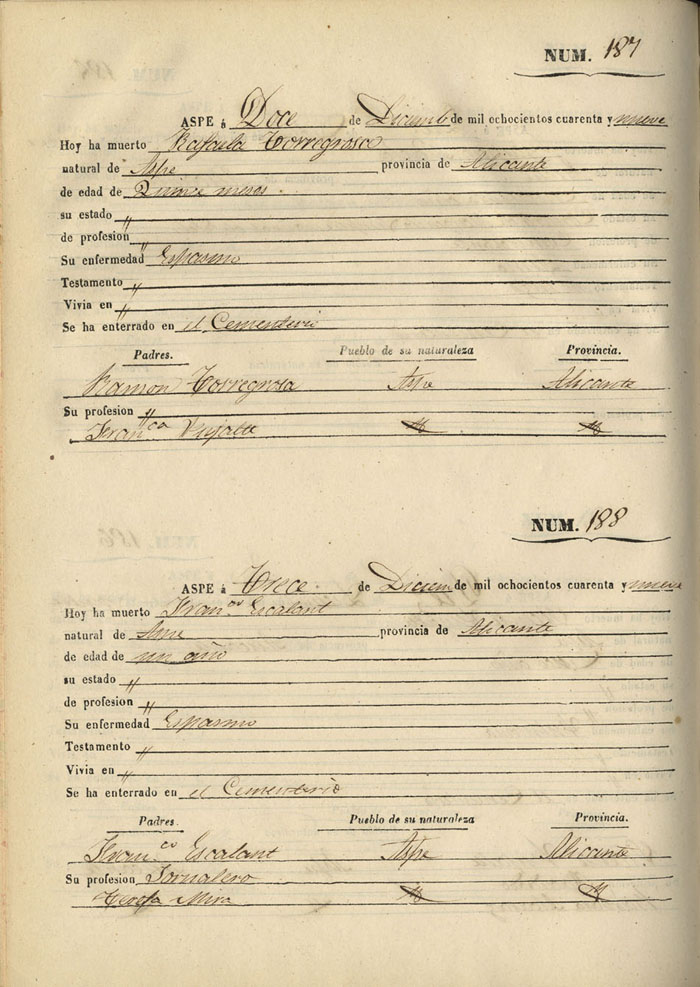 NUM. 187
ASPE á Doce de Diciemb de mil ochocientos cuarenta y nueve
Hoy ha muerto Rafaela Torregrosa
natural de Aspe provincia de Alicante
de edad de Quince meses.
su estado "
de profesion "
Su enfermedad Espasmo
Testamento "
Vivia en "
Se ha enterrado en el Cementerio
Padres. Pueblo de su naturaleza Provincia.
Ramon Torregrosa Aspe Alicante
Su profesion "
Fran.ca
NUM. 188
ASPE á Trece de Diciem de mil ochocientos cuarenta y nueve
Hoy ha muerto Fran.co Escalant
natural de Aspe provincia de Alicante
de edad de un año
su estado "
de profesion "
Su enfermedad Espasmo
Testamento "
Vivia en "
Se ha enterrado en el Cementerio
Padres. Pueblo de su naturaleza Provincia.
Fran.co Escalant Aspe Alicante
Su profesion Jornalero
Teresa Mira